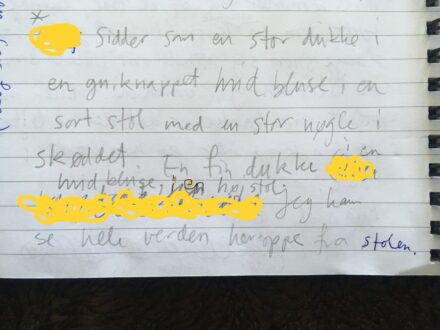 *
Sidder som en stor dukke i
en guiknappet hvid bluse, en
sort stol med en stor nøgle i
skøddet. En fin dukke i en
hvid bluse, i en høj stol.
Jeg kan
se hele verden heroppe fra stolen.